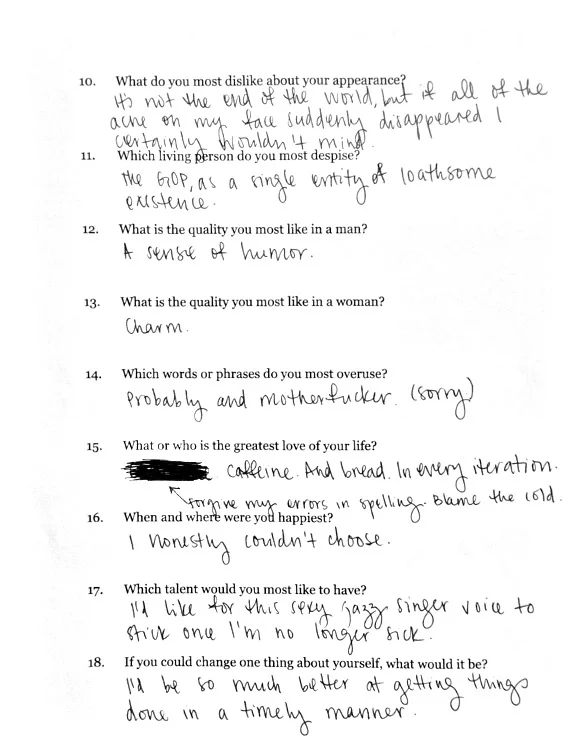 10. What do you most dislike about your appearance?
It's not the end of the world, but if all of the
acne on my face suddenly disappeared I
certainly wouldn't mind.
11. Which living person do you most despise?
the GOP, as a single entity of loathsome
existence.
12. What is the quality you most like in a man?
A sense of humor.
13. What is the quality you most like in a woman?
Charm.
14. Which words or phrases do you most overuse?
Probably and motherfucker. (sorry)
15. What or who is the greatest love of your life?
caffeine. And bread. In every iteration.
forgive my errors in spelling. Blame the cold.
16. When and where were you happiest?
I honestly couldn't choose.
17. Which talent would you most like to have?
I'd like for this sexy jazzy singer voice to
stick once I'm no longer sick.
18. If you could change one thing about yourself, what would it be?
I'd be so much better at getting things
done in a timely manner.